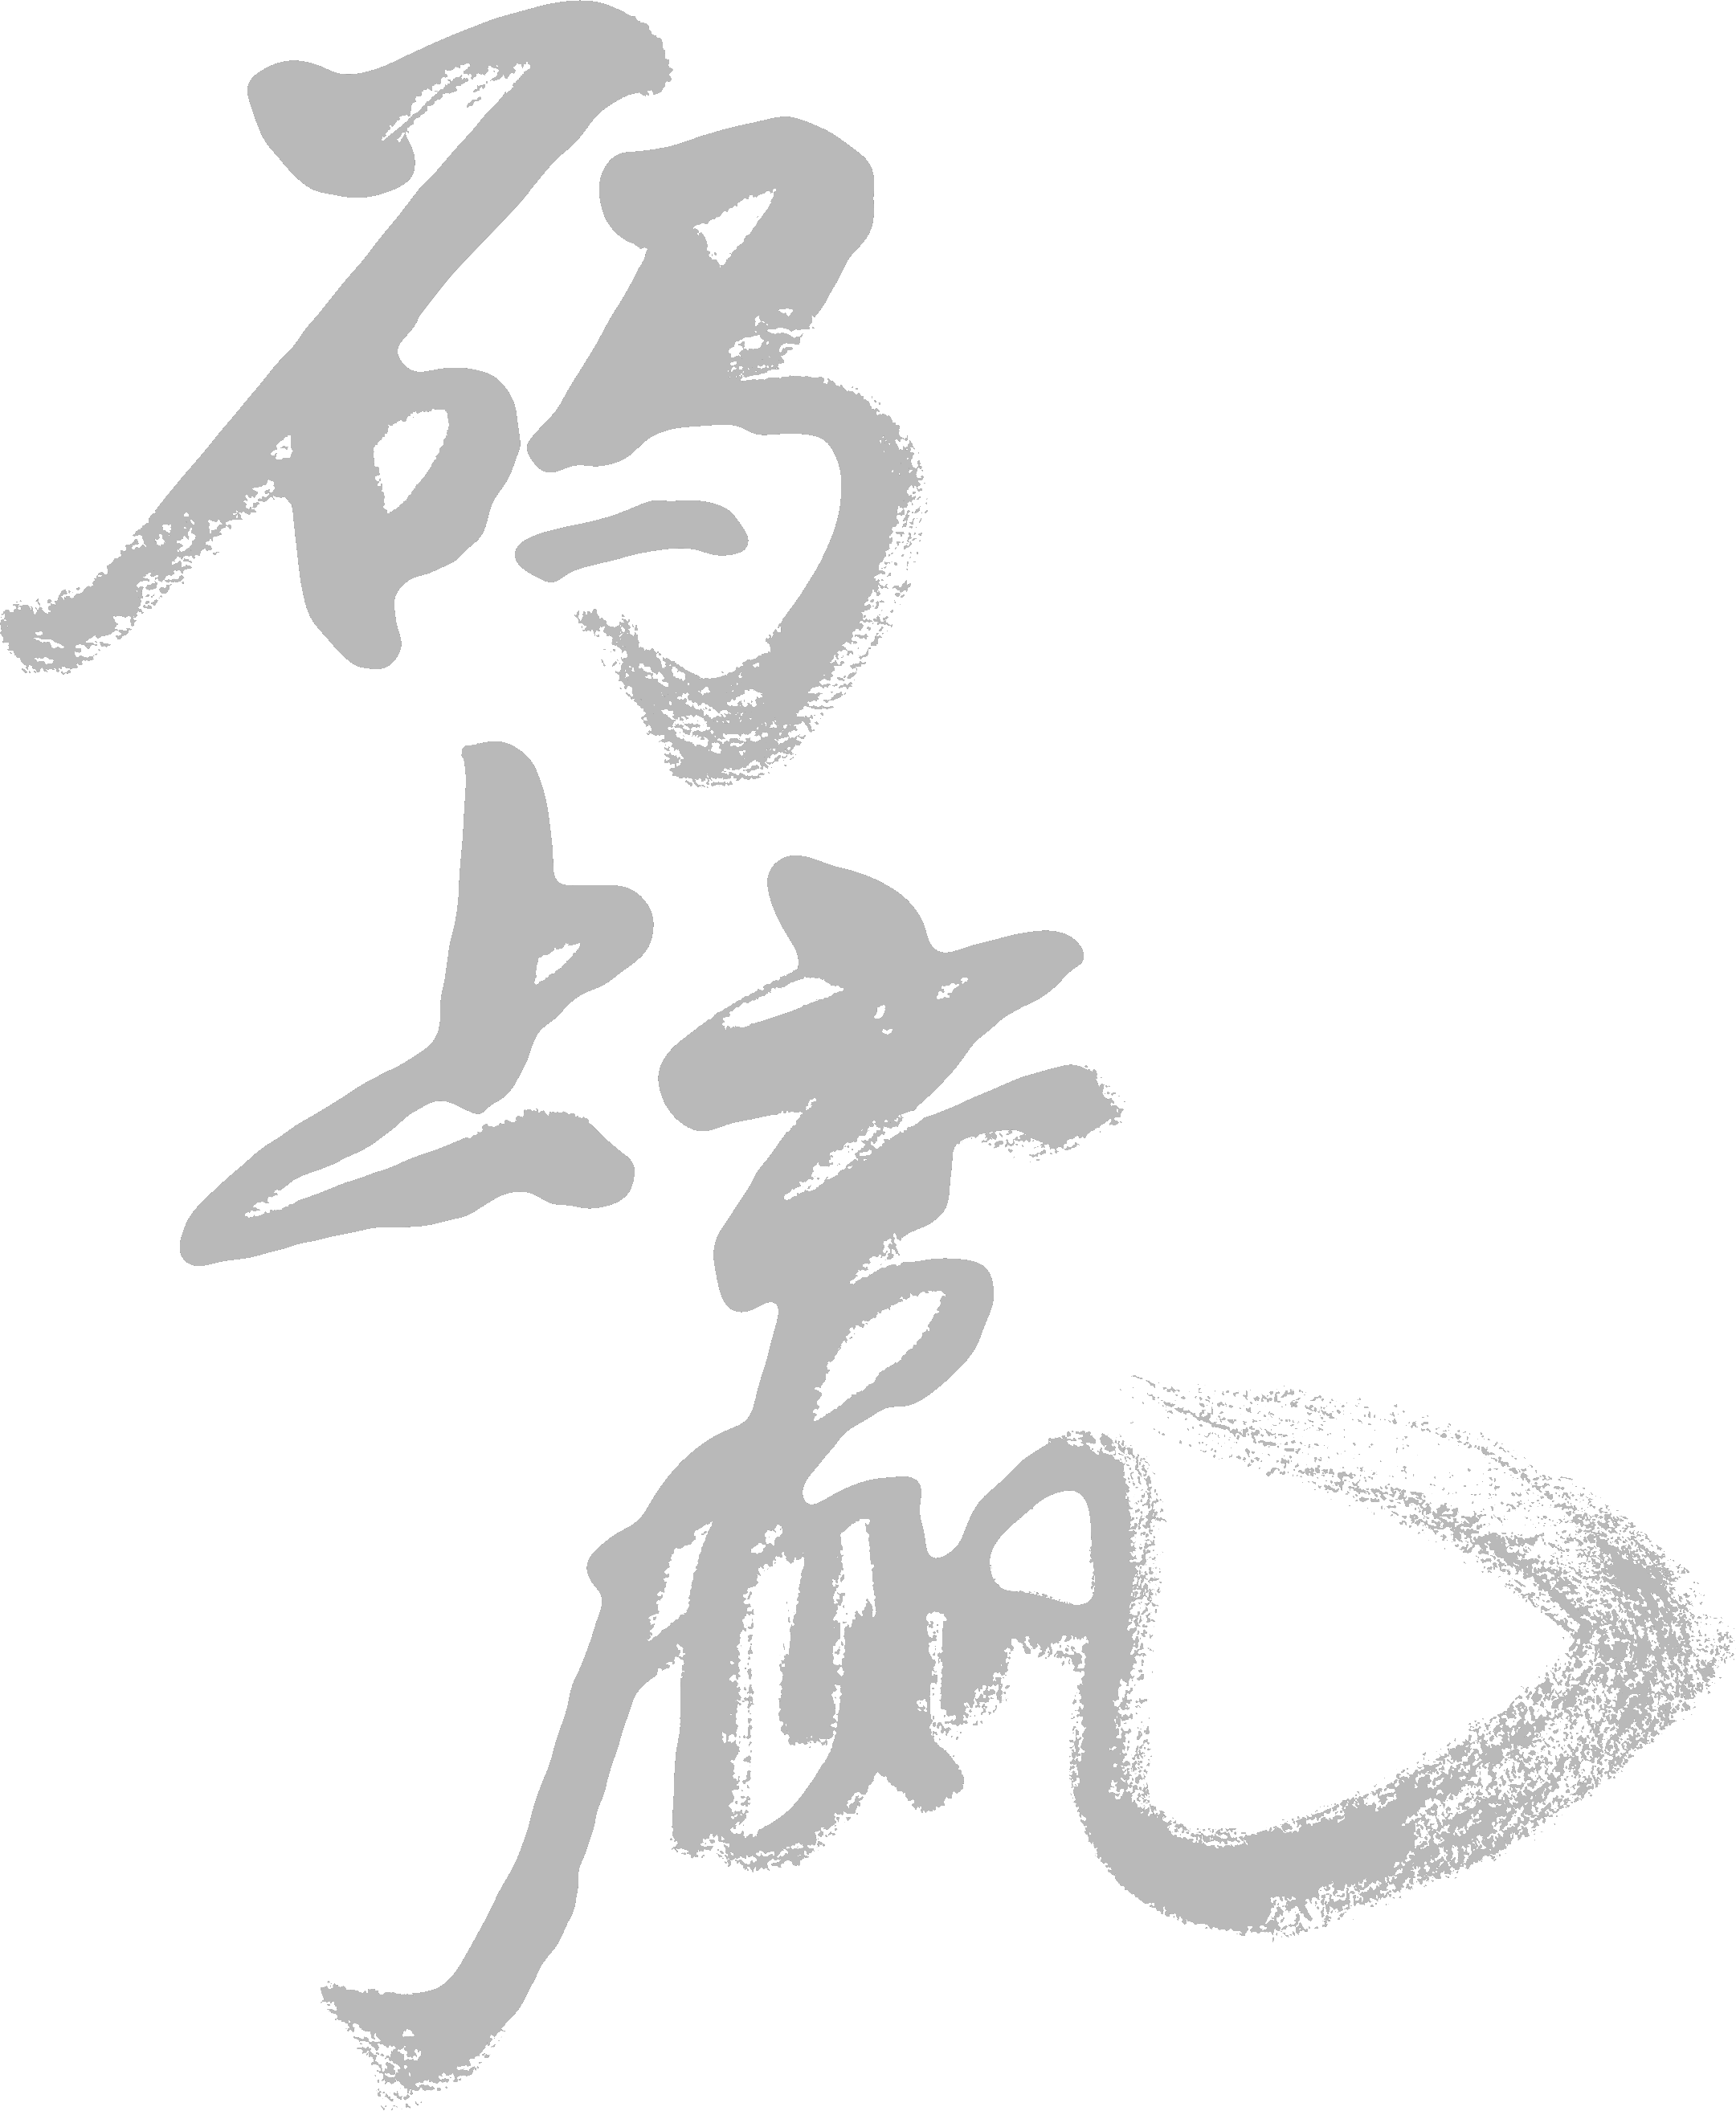 码上赢